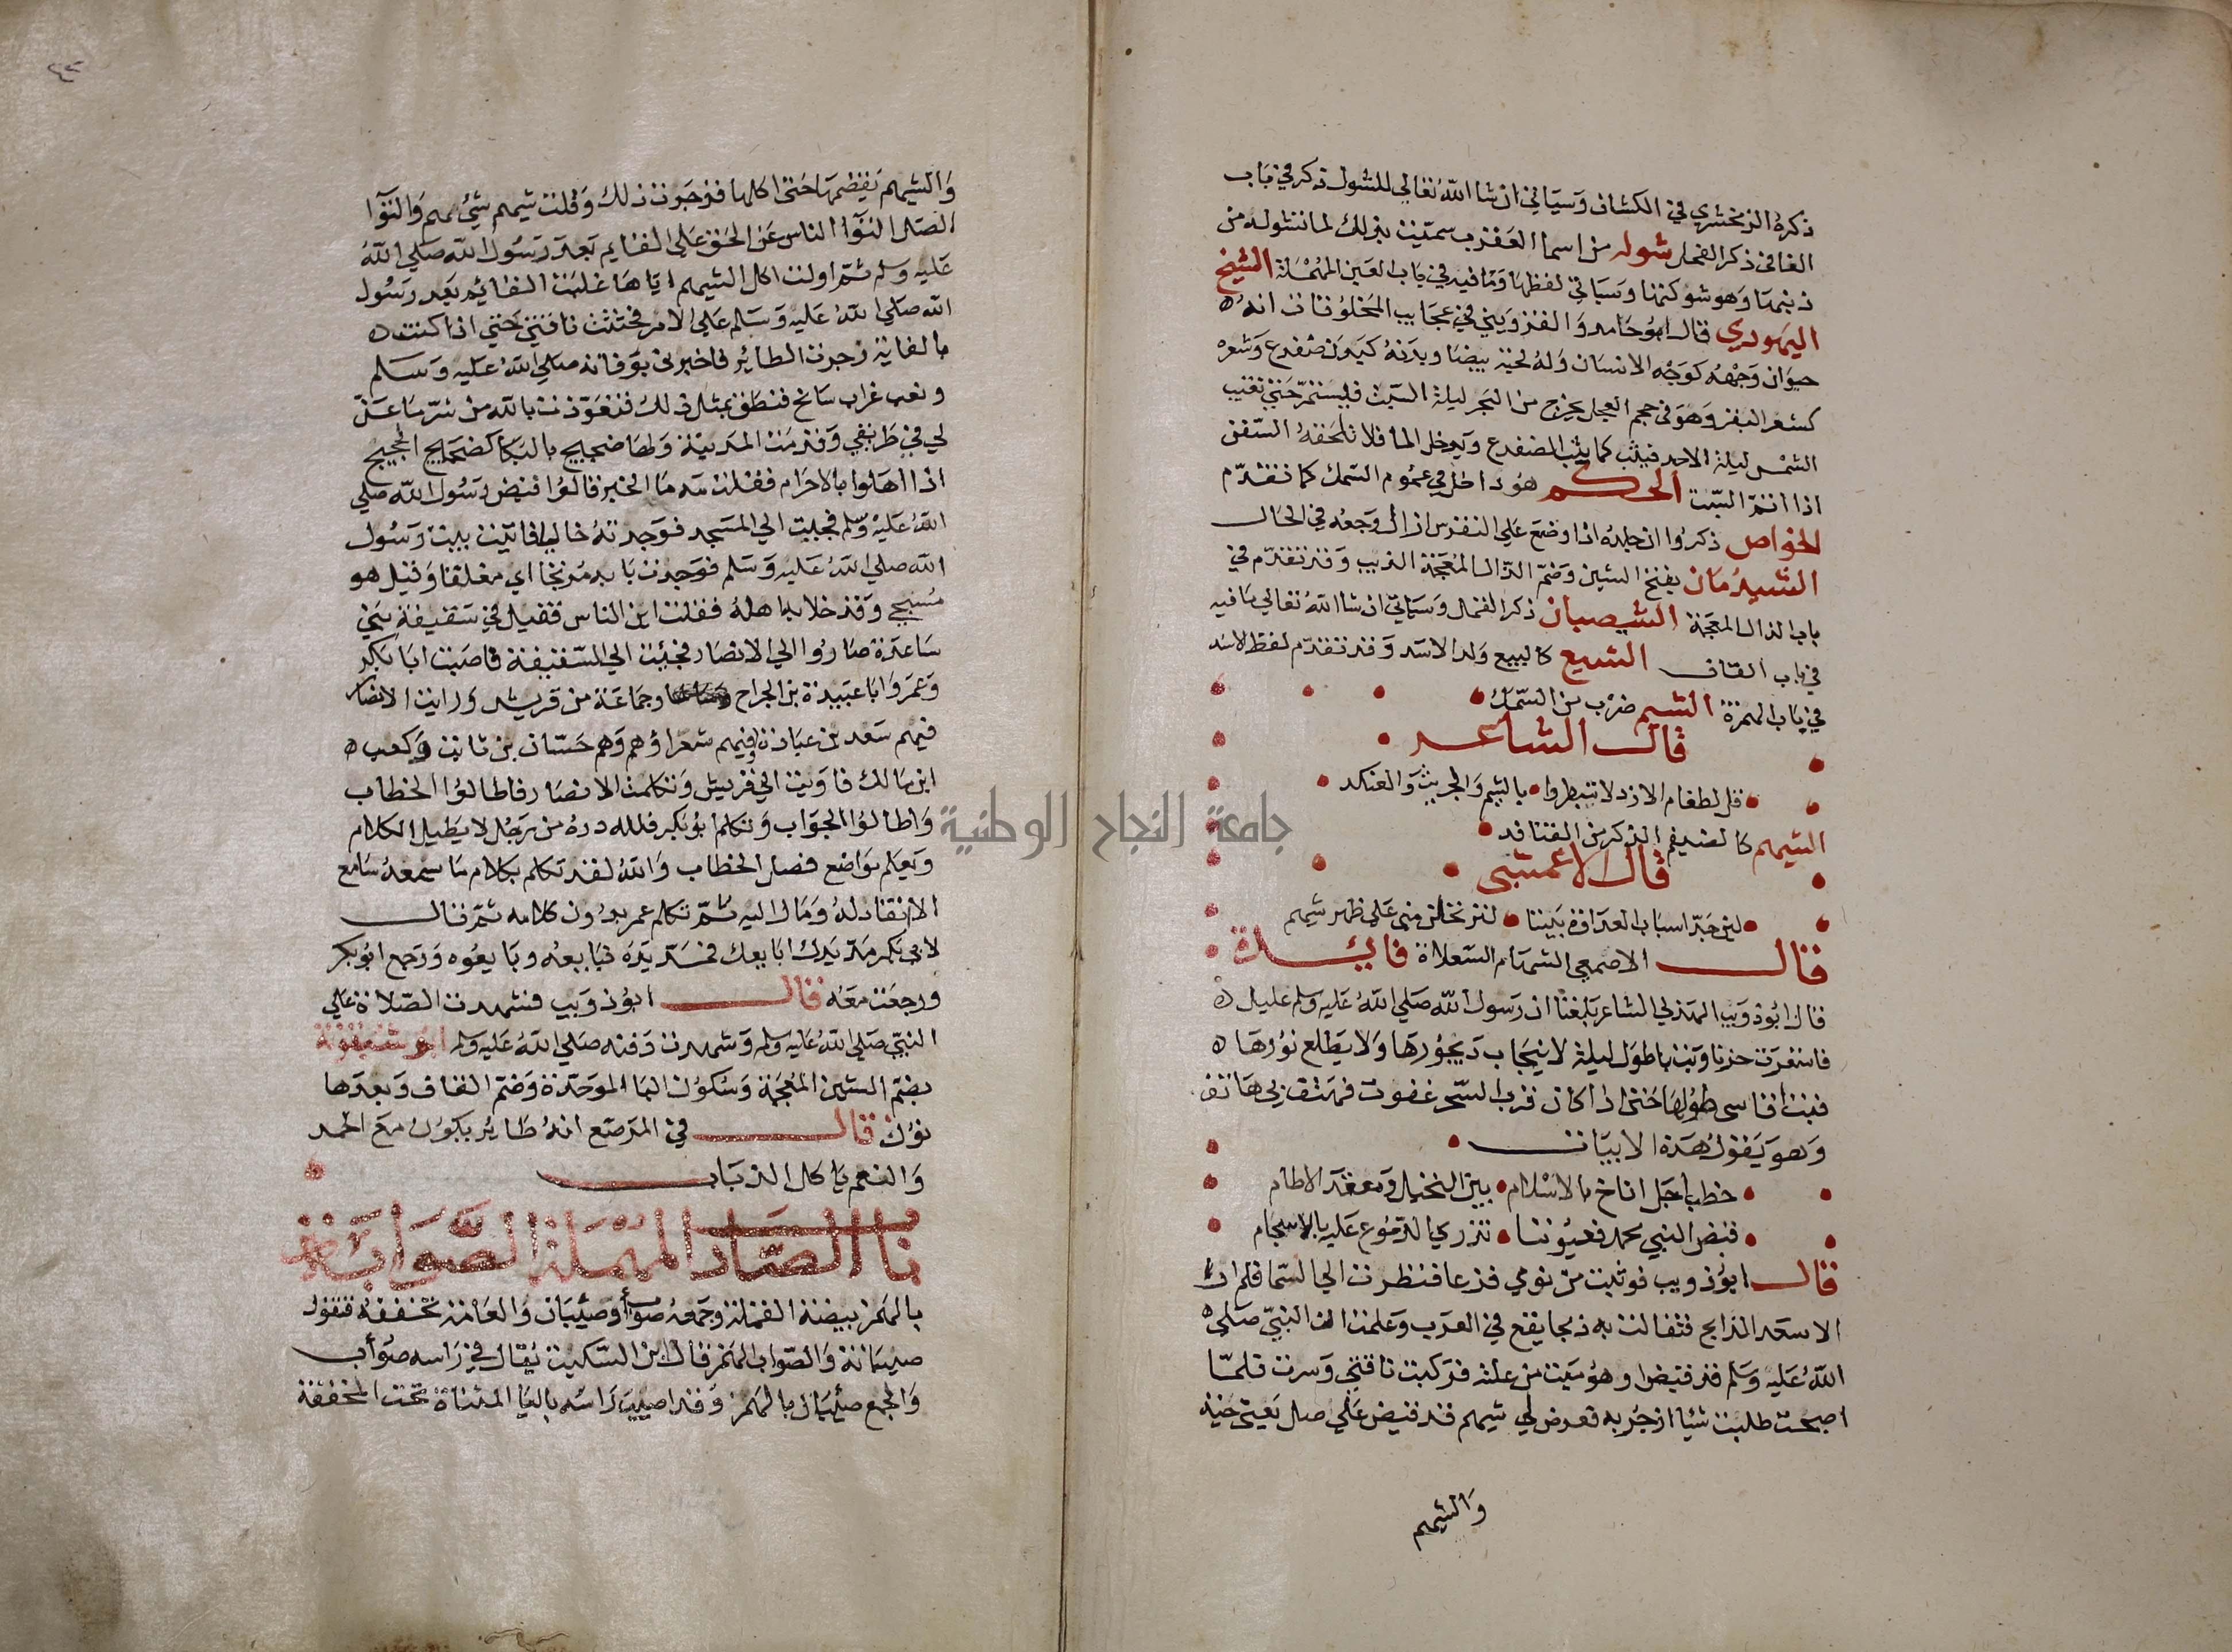 ذكره الزمخشري في الكشاف وسياتي ان شا الله تعالي للشول ذكر في باب
الفا في ذكر الفحل شوله من اسما العقرب سميت بذلك لما تشوله من
ذنبها وهو شوكتها وسياتي لفظها وما فيه في باب العين المهملة الشيخ
اليهودي قال ابو حامد والقزويني في عجايب المخلوقات انه
حيوان وجهه كوجه الانسان وله لحية بيضا وبدنه كبدن ضفدع وشعره
كشعر البقر وهو في حجم العجل يخرج من البحر ليلة السبت فيستمر حتي تغيب
الشمس ليلة الاحد فيثب كما يثب الضفدع ويدخل الما فلا تلحقه السفن
اذا انتم السبت الحكم هو داخل في عموم السمك كما تقدم
الخواص ذكروا ان جلده اذا وضع علي النقرس ازال وجعه في الحال
الشيذمان بفتح الشين وضم الذال المعجمة الذيب وقد تقدم في
باب الذال المعجمة الشيصبان ذكر النمل وسياتي ان شا الله تعالي ما فيه
في باب القاف الشيع كالبيع ولد الاسد وقد تقدم لفظ الاسد
في باب الهمزة الشيم ضرب من السمك
قال الشاعر
قل لطغام الازد لا تبطروا بالشيم والجريث والكنعد
الشيهم كالضيغم الذكر من القنافد
قال الاعشي
لين جد اسباب العداوة بيننا لترتحلن مني علي ظهر شيهم
قال الاصمعي الشهام السعلاة فايدة
قال ابو ذويب الهذلي الشاعر بلغنا ان رسول الله صلي الله عليه وسلم عليل
فاستعرت حزنا وبت باطول ليلة لا ينجاب ديجورها ولا يطلع نورها
فبت اقاسي طولها حتي اذا كان قرب السحر غفوت فهتف بي هاتف
وهو يقول هذه الابيات
خطب اجل اناخ بالاسلام بين النخيل ومعقد الاطام
قبض النبي محمد فعيوننا تذري الدموع عليه بالاسجام
قال ابو ذويب فوثبت من نومي فزعا فنظرت الي السما فلم ار
الا سعد الذابح فتفالت به ذبحا يقع في العرب وعلمت ان النبي صلي
الله عليه وسلم قد قبض او هو ميت من علته فركبت ناقتي وسرت فلما
اصبحت طلبت شيا ازجر به فعرض لي شيهم قد قبض علي صل يعني حية
والشيهم
والشيهم يقضمها حتي اكلها فزجرت ذلك وقلت شيهم شي مهم والتوا
الصل التوا الناس عن الحق علي القايم بعد رسول الله صلي الله
عليه وسلم ثم اولت اكل الشيهم اياها غلبت القائم بعد رسول
الله صلي الله عليه وسلم علي الامر فحثثت ناقتي حتي اذا كنت
بالغابة زجرت الطاير فاخبرني بوفاته صلي الله عليه وسلم
ونعب غراب سانح فنطق بمثل ذلك فتعوذت بالله من شر ما عن
لي في طريقي وقدمت المدينة ولها ضجيج بالبكا كضجيج الحجيج
اذا اهلوا بالاحرام فقلت مه ما الخبر قالوا قبض رسول الله صلي
الله عليه وسلم فجيت الي المسجد فوجدته خاليا فاتيت بيت رسول
الله صلي الله عليه وسلم فوجدت بابه مرتجا اي مغلقا وقيل هو
مسجي وقد خلا به اهله فقلت اين الناس فقيل في سقيفة بني
ساعدة صاروا الي الانصار فجئت الي السقيفة فاصبت ابا بكر
وعمر وابا عبيدة بن الجراح وجماعة من قريش ورايت الانصار
فيهم سعد بن عبادة وفيهم شعراؤهم وهم حسان بن ثابت وكعب
ابن مالك فاويت الي قريش وتكلمت الانصار فاطالوا الخطاب
واطالوا الجواب وتكلم ابو بكر فلله دره من رجل لا يطيل الكلام
ويعلم مواضع فصل الخطاب والله لقد تكلم بكلام ما سمعه سامع
الا انقاد له ومال اليه ثم تكلم عمر بدون كلامه ثم قال
لابي بكر مد يدك ابايعك فمد يده فبايعه وبايعوه ورجع ابو بكر
ورجعت معه قال ابو ذويب فشهدت الصلاة علي
النبي صلي الله عليه وسلم وشهدت دفنه صلي الله عليه وسلم ابو شبقونة
بضم الشين المعجمة وسكون البا الموحدة وضم القاف وبعدها
نون قال في المرصع انه طاير يكون مع الحمر
والنعم ياكل الذباب
باب الصاد المهملة الصوابة
بالهمز بيضة القملة وجمعه صوأب وصئبان والعامة تخففه فتقول
صيبانة والصواب الهمز قال ابن السكيت يقال في راسه صوأب
والجمع صئبان بالهمز وقد اصيب راسه باليا المثناة تحت المخففة
جامعة النجاح الوطنية